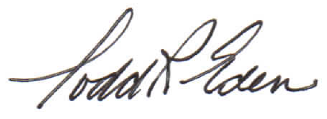 Todd R Eden